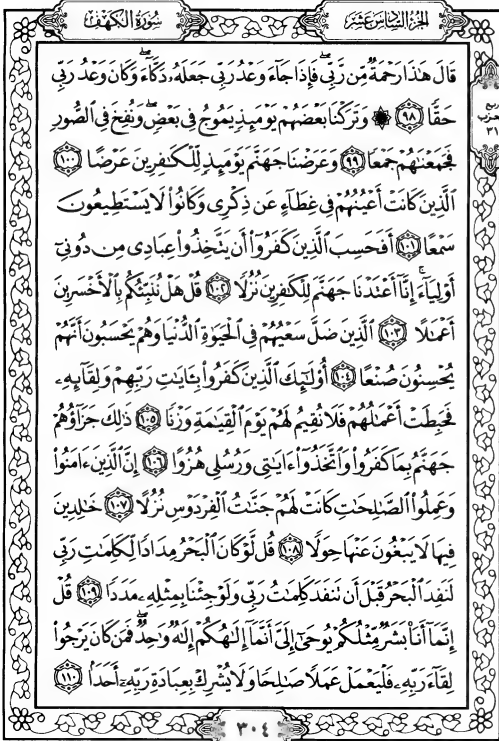 الجزء السادس عشر
سورة الكهف
قَالَ هَٰذَا رَحْمَةٌ مِّن رَّبِّي فَإِذَا جَآءَ وَعْدُ رَبِّي جَعَلَهُۥ دَكَّآءَ وَكَانَ وَعْدُ رَبِّي
حَقًّا ٩٨ ۞ وَتَرَكْنَا بَعْضَهُمْ يَوْمَئِذٍ يَمُوجُ فِي بَعْضٍ وَنُفِخَ فِي الصُّورِ
فَجَمَعْنَٰهُمْ جَمْعًا ٩٩ وَعَرَضْنَا جَهَنَّمَ يَوْمَئِذٍ لِّلْكَٰفِرِينَ عَرْضًا ١٠٠
الَّذِينَ كَانَتْ أَعْيُنُهُمْ فِي غِطَآءٍ عَن ذِكْرِي وَكَانُوا۟ لَا يَسْتَطِيعُونَ
سَمْعًا ١٠١ أَفَحَسِبَ الَّذِينَ كَفَرُوٓا۟ أَن يَتَّخِذُوا۟ عِبَادِي مِن دُونِيٓ
أَوْلِيَآءَ إِنَّآ أَعْتَدْنَا جَهَنَّمَ لِلْكَٰفِرِينَ نُزُلًا ١٠٢ قُلْ هَلْ نُنَبِّئُكُم بِالْأَخْسَرِينَ
أَعْمَٰلًا ١٠٣ الَّذِينَ ضَلَّ سَعْيُهُمْ فِي الْحَيَوٰةِ الدُّنْيَا وَهُمْ يَحْسَبُونَ أَنَّهُمْ
يُحْسِنُونَ صُنْعًا ١٠٤ أُو۟لَٰٓئِكَ الَّذِينَ كَفَرُوا۟ بِـَٔايَٰتِ رَبِّهِمْ وَلِقَآئِهِۦ
فَحَبِطَتْ أَعْمَٰلُهُمْ فَلَا نُقِيمُ لَهُمْ يَوْمَ الْقِيَٰمَةِ وَزْنًا ١٠٥ ذَٰلِكَ جَزَآؤُهُمْ
جَهَنَّمُ بِمَا كَفَرُوا۟ وَاتَّخَذُوٓا۟ ءَايَٰتِي وَرُسُلِي هُزُوًا ١٠٦ إِنَّ الَّذِينَ ءَامَنُوا۟
وَعَمِلُوا۟ الصَّٰلِحَٰتِ كَانَتْ لَهُمْ جَنَّٰتُ الْفِرْدَوْسِ نُزُلًا ١٠٧ خَٰلِدِينَ
فِيهَا لَا يَبْغُونَ عَنْهَا حِوَلًا ١٠٨ قُل لَّوْ كَانَ الْبَحْرُ مِدَادًا لِّكَلِمَٰتِ رَبِّي
لَنَفِدَ الْبَحْرُ قَبْلَ أَن تَنفَدَ كَلِمَٰتُ رَبِّي وَلَوْ جِئْنَا بِمِثْلِهِۦ مَدَدًا ١٠٩ قُلْ
إِنَّمَآ أَنَا۠ بَشَرٌ مِّثْلُكُمْ يُوحَىٰٓ إِلَيَّ أَنَّمَآ إِلَٰهُكُمْ إِلَٰهٌ وَٰحِدٌ فَمَن كَانَ يَرْجُوا۟
لِقَآءَ رَبِّهِۦ فَلْيَعْمَلْ عَمَلًا صَٰلِحًا وَلَا يُشْرِكْ بِعِبَادَةِ رَبِّهِۦٓ أَحَدًۢا ١١٠
ربع
حزب
٣١
٣٠٤